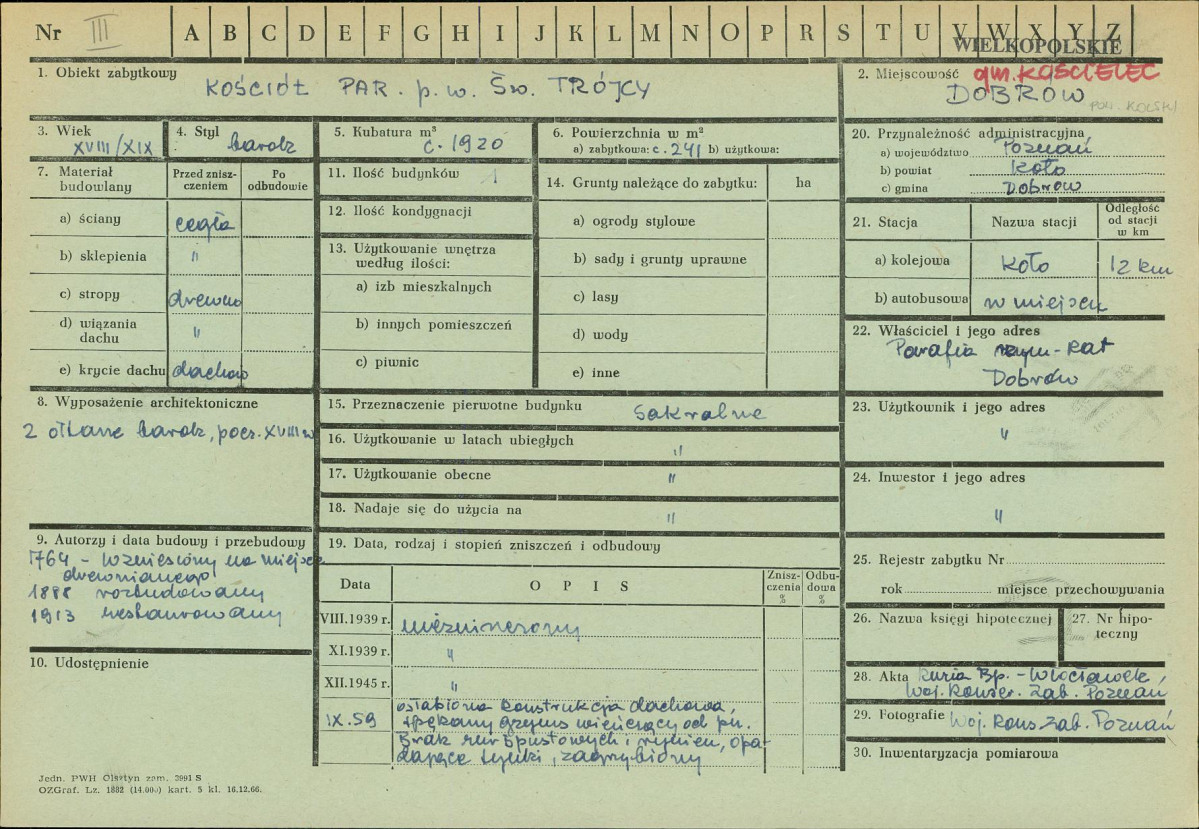 Nr III A B C D E F G H I J K L M N O P R S T U V W X Y Z
WIELKOPOLSKIE
1. Obiekt zabytkowy
KOŚCIÓŁ PAR. p.w. Św. TRÓJCY
2. Miejscowość gm. KOŚCIELEC
DOBRÓW
pow. KOLSKI
3. Wiek
XVIII/XIX
4. Styl
barok
5. Kubatura m³
c. 1920
6. Powierzchnia w m²
a) zabytkowa: c. 241 b) użytkowa:
7. Materiał budowlany
Przed zniszczeniem
Po odbudowie
a) ściany cegła
b) sklepienia "
c) stropy drewno
d) wiązania dachu "
e) krycie dachu dachów
8. Wyposażenie architektoniczne
2 ołtarze barok, pocz. XVIII w
9. Autorzy i data budowy i przebudowy
1764 - wzniesiony na miejsce
drewnianego
1888 rozbudowany
1913 restaurowany
10. Udostępnienie
11. Ilość budynków 1
12. Ilość kondygnacji
13. Użytkowanie wnętrza
według ilości:
a) izb mieszkalnych
b) innych pomieszczeń
c) piwnic
14. Grunty należące do zabytku: ha
a) ogrody stylowe
b) sady i grunty uprawne
c) lasy
d) wody
e) inne
15. Przeznaczenie pierwotne budynku sakralne
16. Użytkowanie w latach ubiegłych "
17. Użytkowanie obecne "
18. Nadaje się do użycia na "
19. Data, rodzaj i stopień zniszczeń i odbudowy
Data O P I S Zniszczenia % Odbudowa %
VIII.1939 r. niezniszczony
XI.1939 r. "
XII.1945 r. "
IX.59 osłabiona konstrukcja dachowa,
spękany gzyms wieńczący od pn.
Brak rur spustowych i rynien, opa-
dające tynki, zagrzybiony
20. Przynależność administracyjna
a) województwo Poznań
b) powiat Koło
c) gmina Dobrów
21. Stacja Nazwa stacji Odległość od stacji w km
a) kolejowa Koło 12 km
b) autobusowa w miejscu
22. Właściciel i jego adres
Parafia rzym-kat
Dobrów
23. Użytkownik i jego adres
"
24. Inwestor i jego adres
"
25. Rejestr zabytku Nr
rok miejsce przechowywania
26. Nazwa księgi hipotecznej
27. Nr hipoteczny
28. Akta Kuria Bp. - Włocławek,
Woj. Konser. Zab. Poznań
29. Fotografie Woj. Kons. Zab. Poznań
30. Inwentaryzacja pomiarowa
Jedn. PWH Olsztyn zam. 3991 S
OZGraf. Lz. 1882 (14.000) kart. 5 kl. 16.12.66.